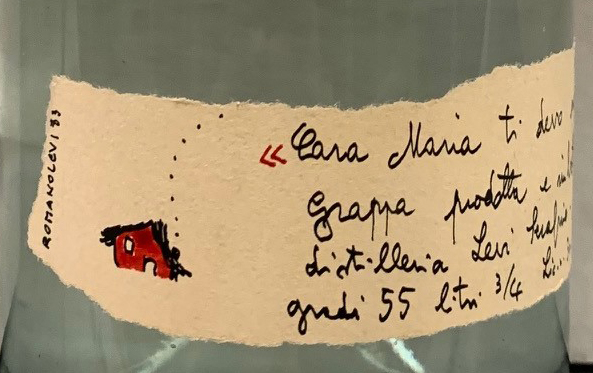 ROMANOLEVI 83
« Cara Maria ti devo
Grappa prodotta e
distilleria Levi Serafino
gradi 55 litri 3/4